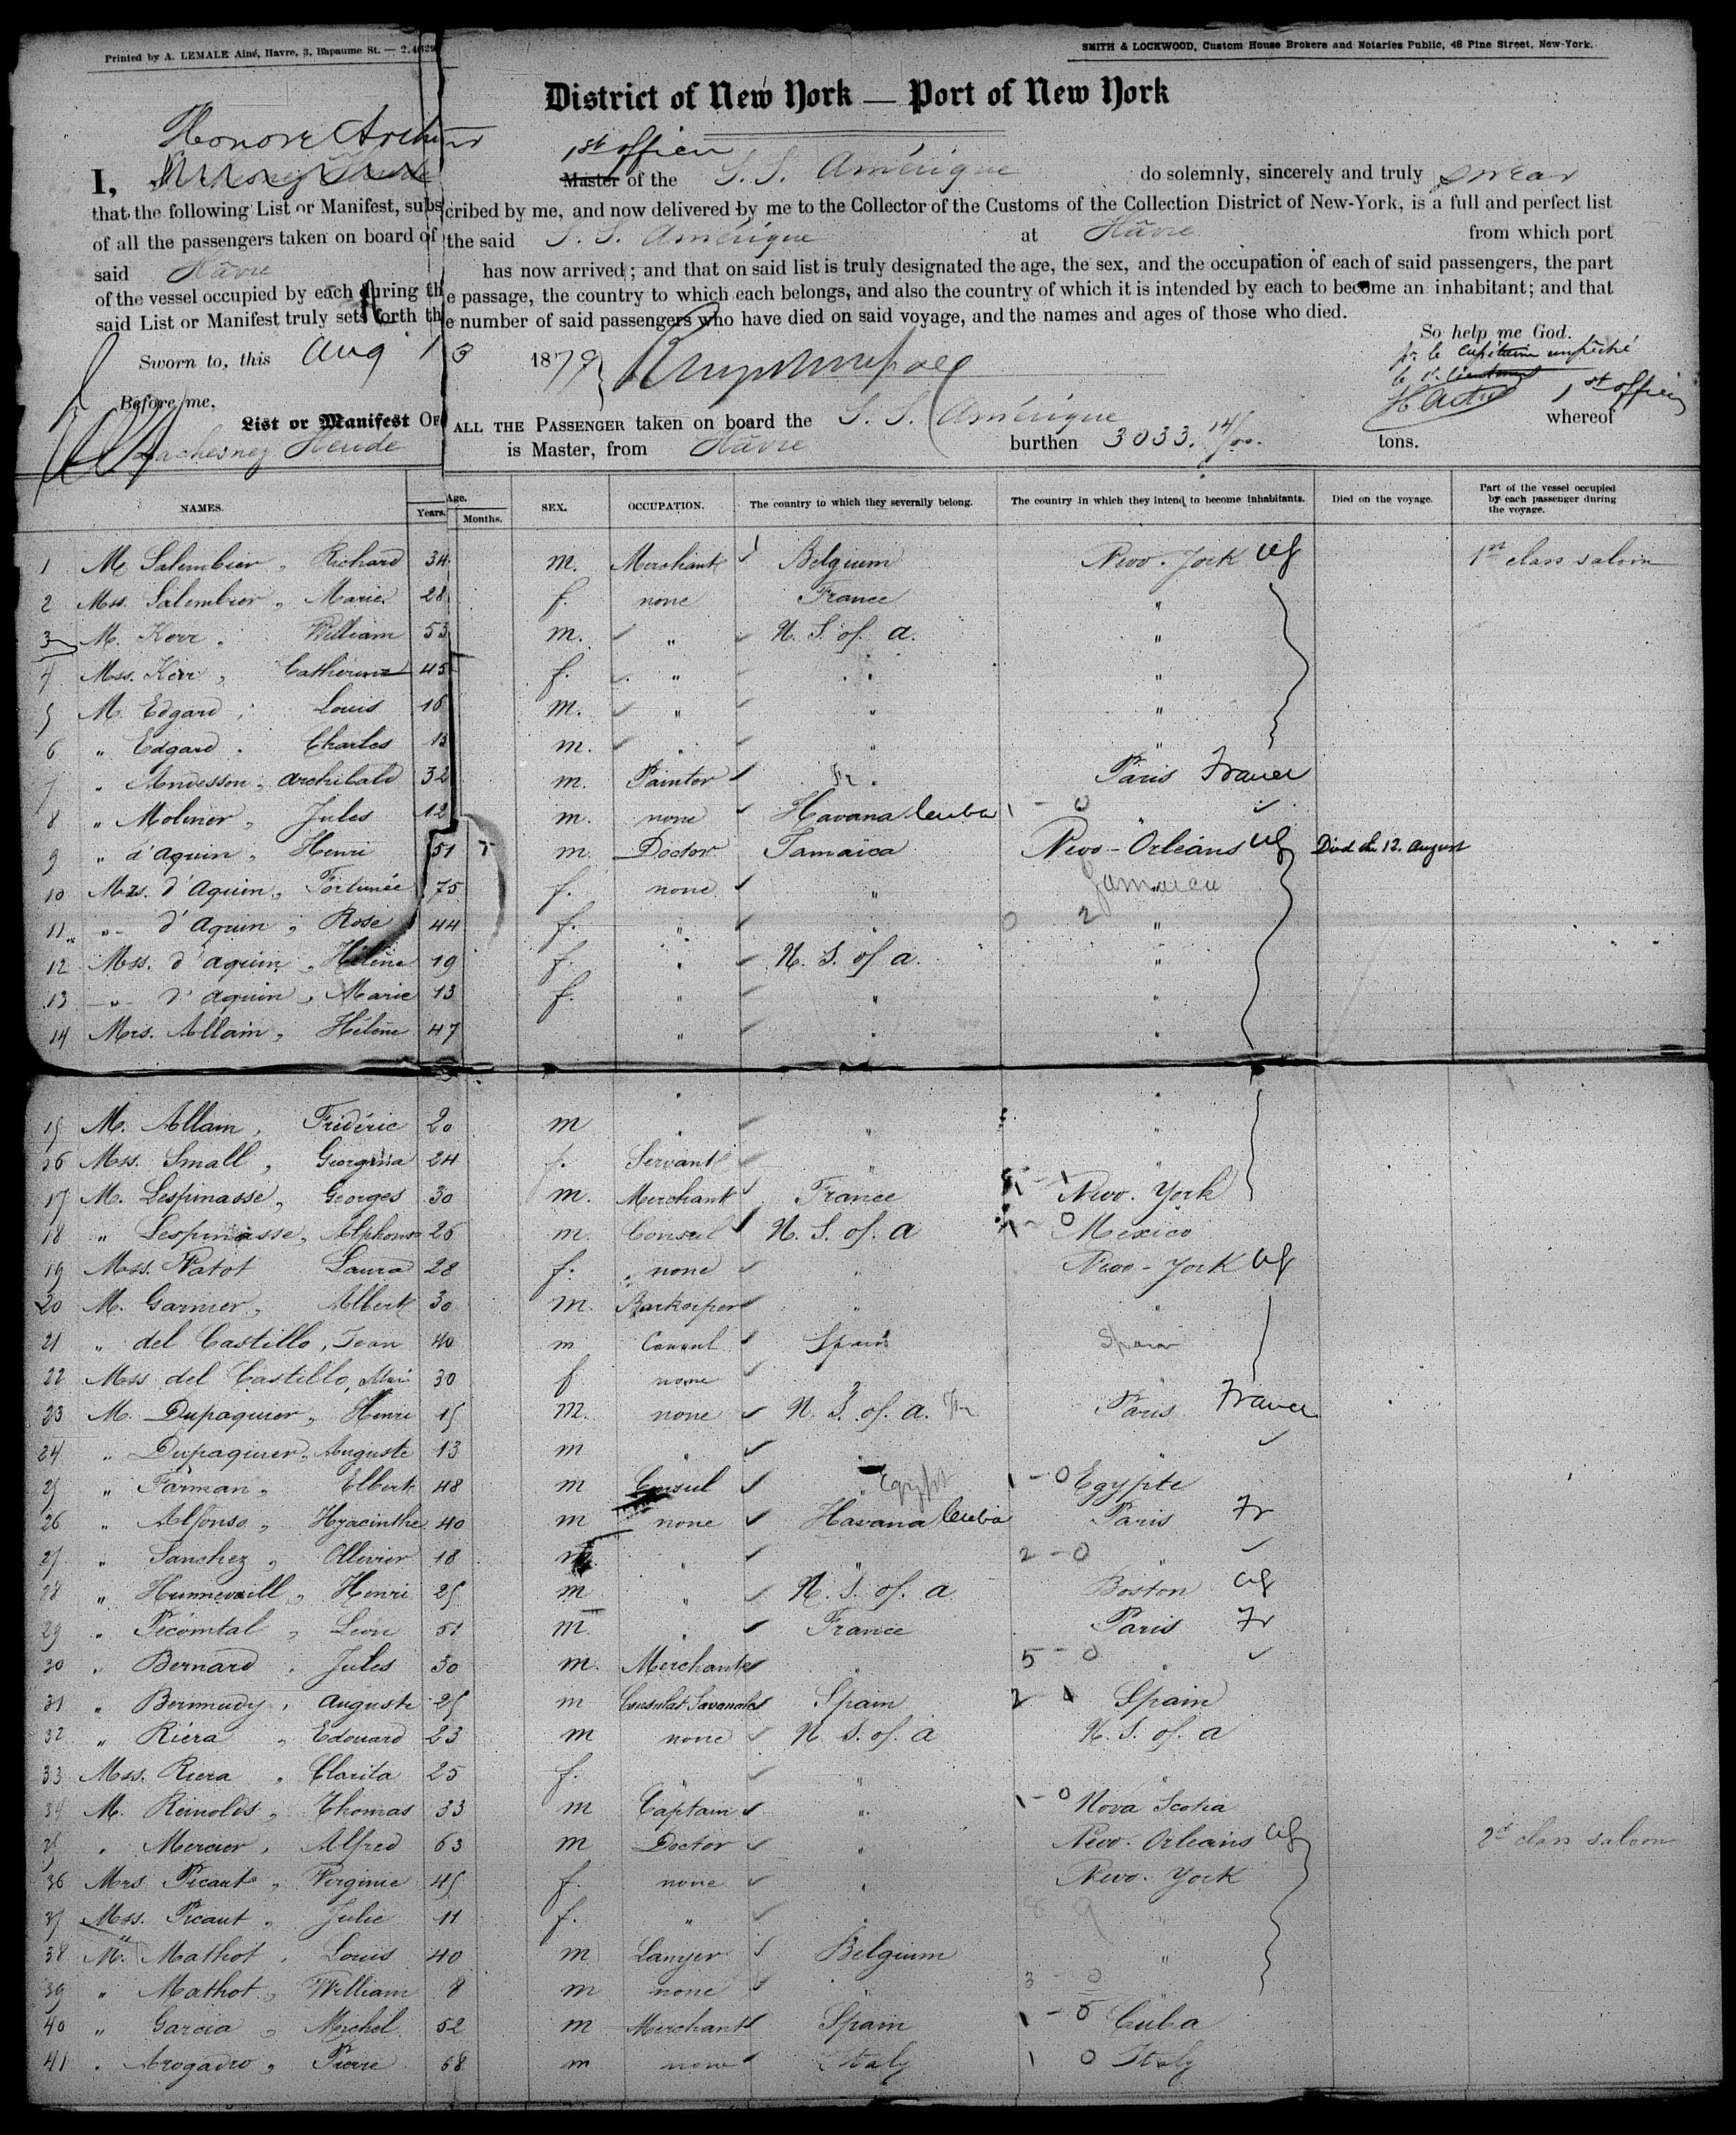 Printed by A. LEMALE Aîné, Havre, 3, Bapaume St. — 2.4629
SMITH & LOCKWOOD, Custom House Brokers and Notaries Public, 48 Pine Street, New-York.
District of New York — Port of New York
Honoré Arthur
1st officer
I, Master of the S. S. Amérique do solemnly, sincerely and truly swear
that the following List or Manifest, subscribed by me, and now delivered by me to the Collector of the Customs of the Collection District of New-York, is a full and perfect list
of all the passengers taken on board of the said S. S. Amérique at Hâvre from which port
said Hâvre has now arrived; and that on said list is truly designated the age, the sex, and the occupation of each of said passengers, the part
of the vessel occupied by each during the passage, the country to which each belongs, and also the country of which it is intended by each to become an inhabitant; and that
said List or Manifest truly sets forth the number of said passengers who have died on said voyage, and the names and ages of those who died.
So help me God.
pr le Capitaine empêché
le lieutenant
Sworn to, this Aug 13 1879
1st officer
Before me,
List or Manifest OF ALL THE PASSENGER taken on board the S. S. Amérique whereof
Lachesnez Heude is Master, from Hâvre burthen 3033. 14/00. tons.
NAMES. Age. Years. Months. SEX. OCCUPATION. The country to which they severally belong. The country in which they intend to become inhabitants. Died on the voyage. Part of the vessel occupied by each passenger during the voyage.
1 M. Salembier, Richard 34 m. Merchant Belgium New-York US 1st class saloon
2 Mss. Salembier, Marie 28 f. none France "
3 M. Kerr, William 53 m. " U. S. of. a. "
4 Mss. Kerr, Catherine 45 f. " " "
5 M. Edgard, Louis 16 m. " " "
6 " Edgard, Charles 13 m. " " "
7 " Andesson, Archibald 32 m. Painter " Paris France
8 " Molinier, Jules 12 m. none Havana Cuba "
9 " d'Aquin, Henri 51 m. Doctor Jamaica New-Orléans US Died the 12. August
10 Mrs. d'Aquin, Fortunée 75 f. none " Jamaica
11 " d'Aquin, Rose 44 f. " " "
12 Mss. d'Aquin, Hélène 19 f. " U. S. of a. "
13 " d'Aquin, Marie 13 f. " " "
14 Mrs. Allain, Hélène 47 " " "
15 M. Allain, Frédéric 20 m " " "
16 Mss. Small, Georgina 24 f. Servant " "
17 M. Lespinasse, Georges 30 m. Merchant France New-York
18 " Lespinasse, Alphonse 26 m. Consul U. S. of. a Mexico
19 Mss. Patot Laura 28 f. none " New-York US
20 M. Garnier, Albert 30 m. Barkeeper " "
21 " del Castillo, Jean 40 m Consul Spain Spain
22 Mss del Castillo, 30 f none " "
23 M. Dupaquier, Henri 15 m. none U. S. of. a. Fr Paris France
24 " Dupaquier, Auguste 13 m " " "
25 " Farman, Elbert 48 m Consul Egypt Egypte
26 " Alfonso, Hyacinthe 40 m none Havana Cuba Paris Fr
27 " Sanchez, Ollivier 18 m " " "
28 " Hunnewill, Henri 25 m " U. S. of. a Boston US
29 " Picomtal, Léon 51 m. " France Paris Fr
30 " Bernard, Jules 30 m. Merchant " "
31 " Bermudy, Auguste 25 m Consulat Savanah Spain Spain
32 " Riéra, Edouard 23 m none U. S. of. a U. S. of. a
33 Mss. Riera, Clarita 25 f. " " "
34 M. Reinolds, Thomas 33 m Captain " Nova Scotia
35 " Mercier, Alfred 63 m Doctor " New-Orléans US 2d class saloon
36 Mrs Picaut, Virginie 45 f. none " New-York
37 Mss. Picaut, Julie 11 f. " " "
38 M. Mathot, Louis 40 m Lawyer Belgium "
39 " Mathot, William 8 m none " "
40 " Garcia, Michel 52 m Merchant Spain Cuba
41 " Avogadro, Pierre 68 m none Italy Italy